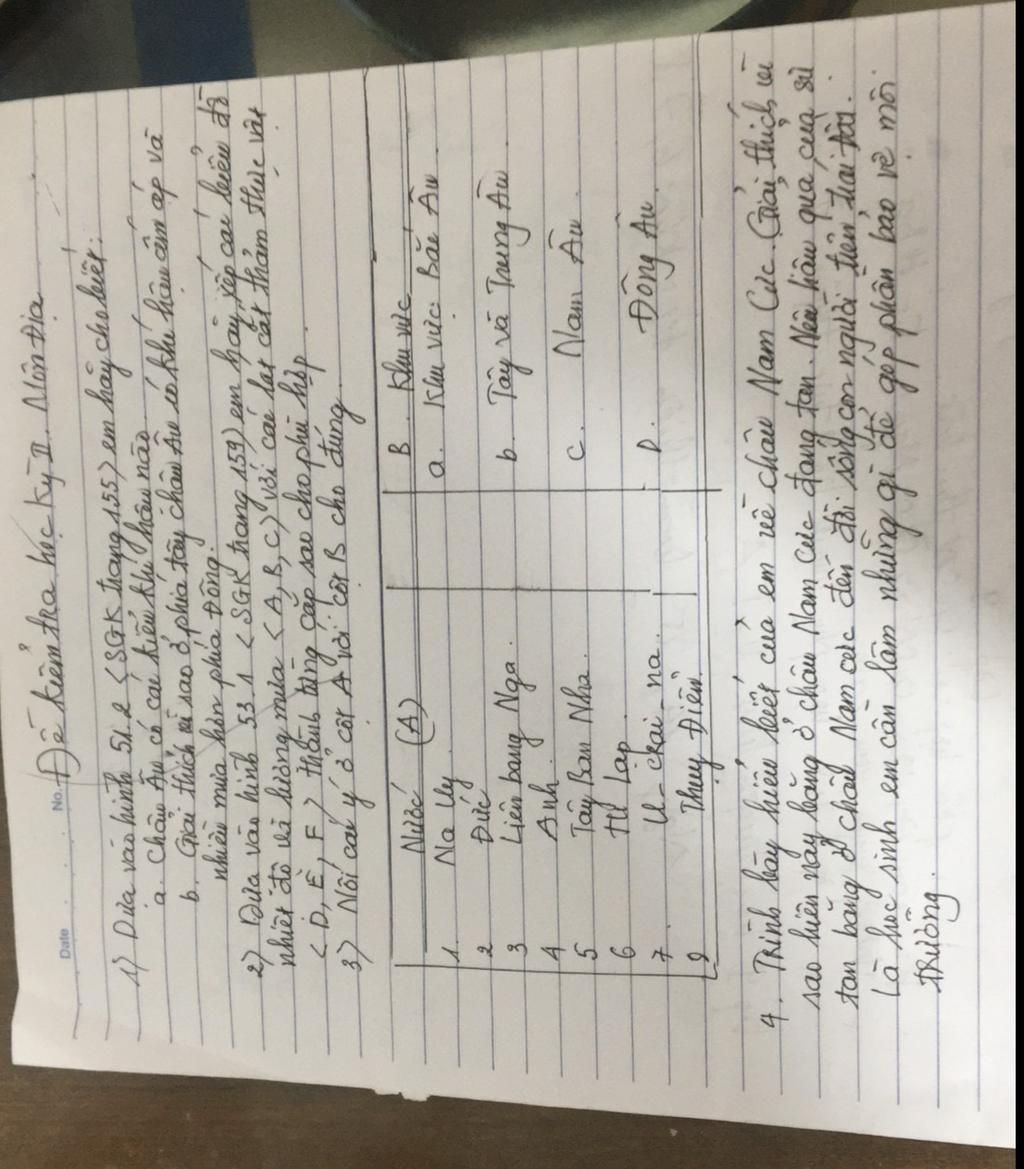 Date No.
Đề kiểm tra học kỳ II. Môn Địa
1) Dựa vào hình 51.2 <SGK trang 155> em hãy cho biết:
a. Châu Âu có các kiểu khí hậu nào
b. Giải thích vì sao ở phía tây châu Âu có khí hậu ấm áp và
nhiều mưa hơn phía Đông.
2) Dựa vào hình 53.1 <SGK trang 159> em hãy xếp các biểu đồ
nhiệt độ và lượng mưa <A, B, C> với các lát cắt thảm thực vật
<D, E, F> thành từng cặp sao cho phù hợp.
3) Nối các ý ở cột A với cột B cho đúng
Nước (A) B. Khu vực
1. Na Uy a. Khu vực Bắc Âu
2 Đức
3 Liên bang Nga. b. Tây và Trung Âu
4 Anh.
5 Tây Ban Nha. C. Nam Âu.
6 Hi Lạp.
7. U-crai-na. D. Đông Âu.
8 Thụy Điển
4. Trình bày hiểu biết của em về châu Nam Cực. Giải thích vì
sao hiện nay băng ở châu Nam Cực đang tan. Nêu hậu quả của sự
tan băng ở châu Nam cực đến đời sống con người trên trái đất.
Là học sinh em cần làm những gì để góp phần bảo vệ môi
trường.